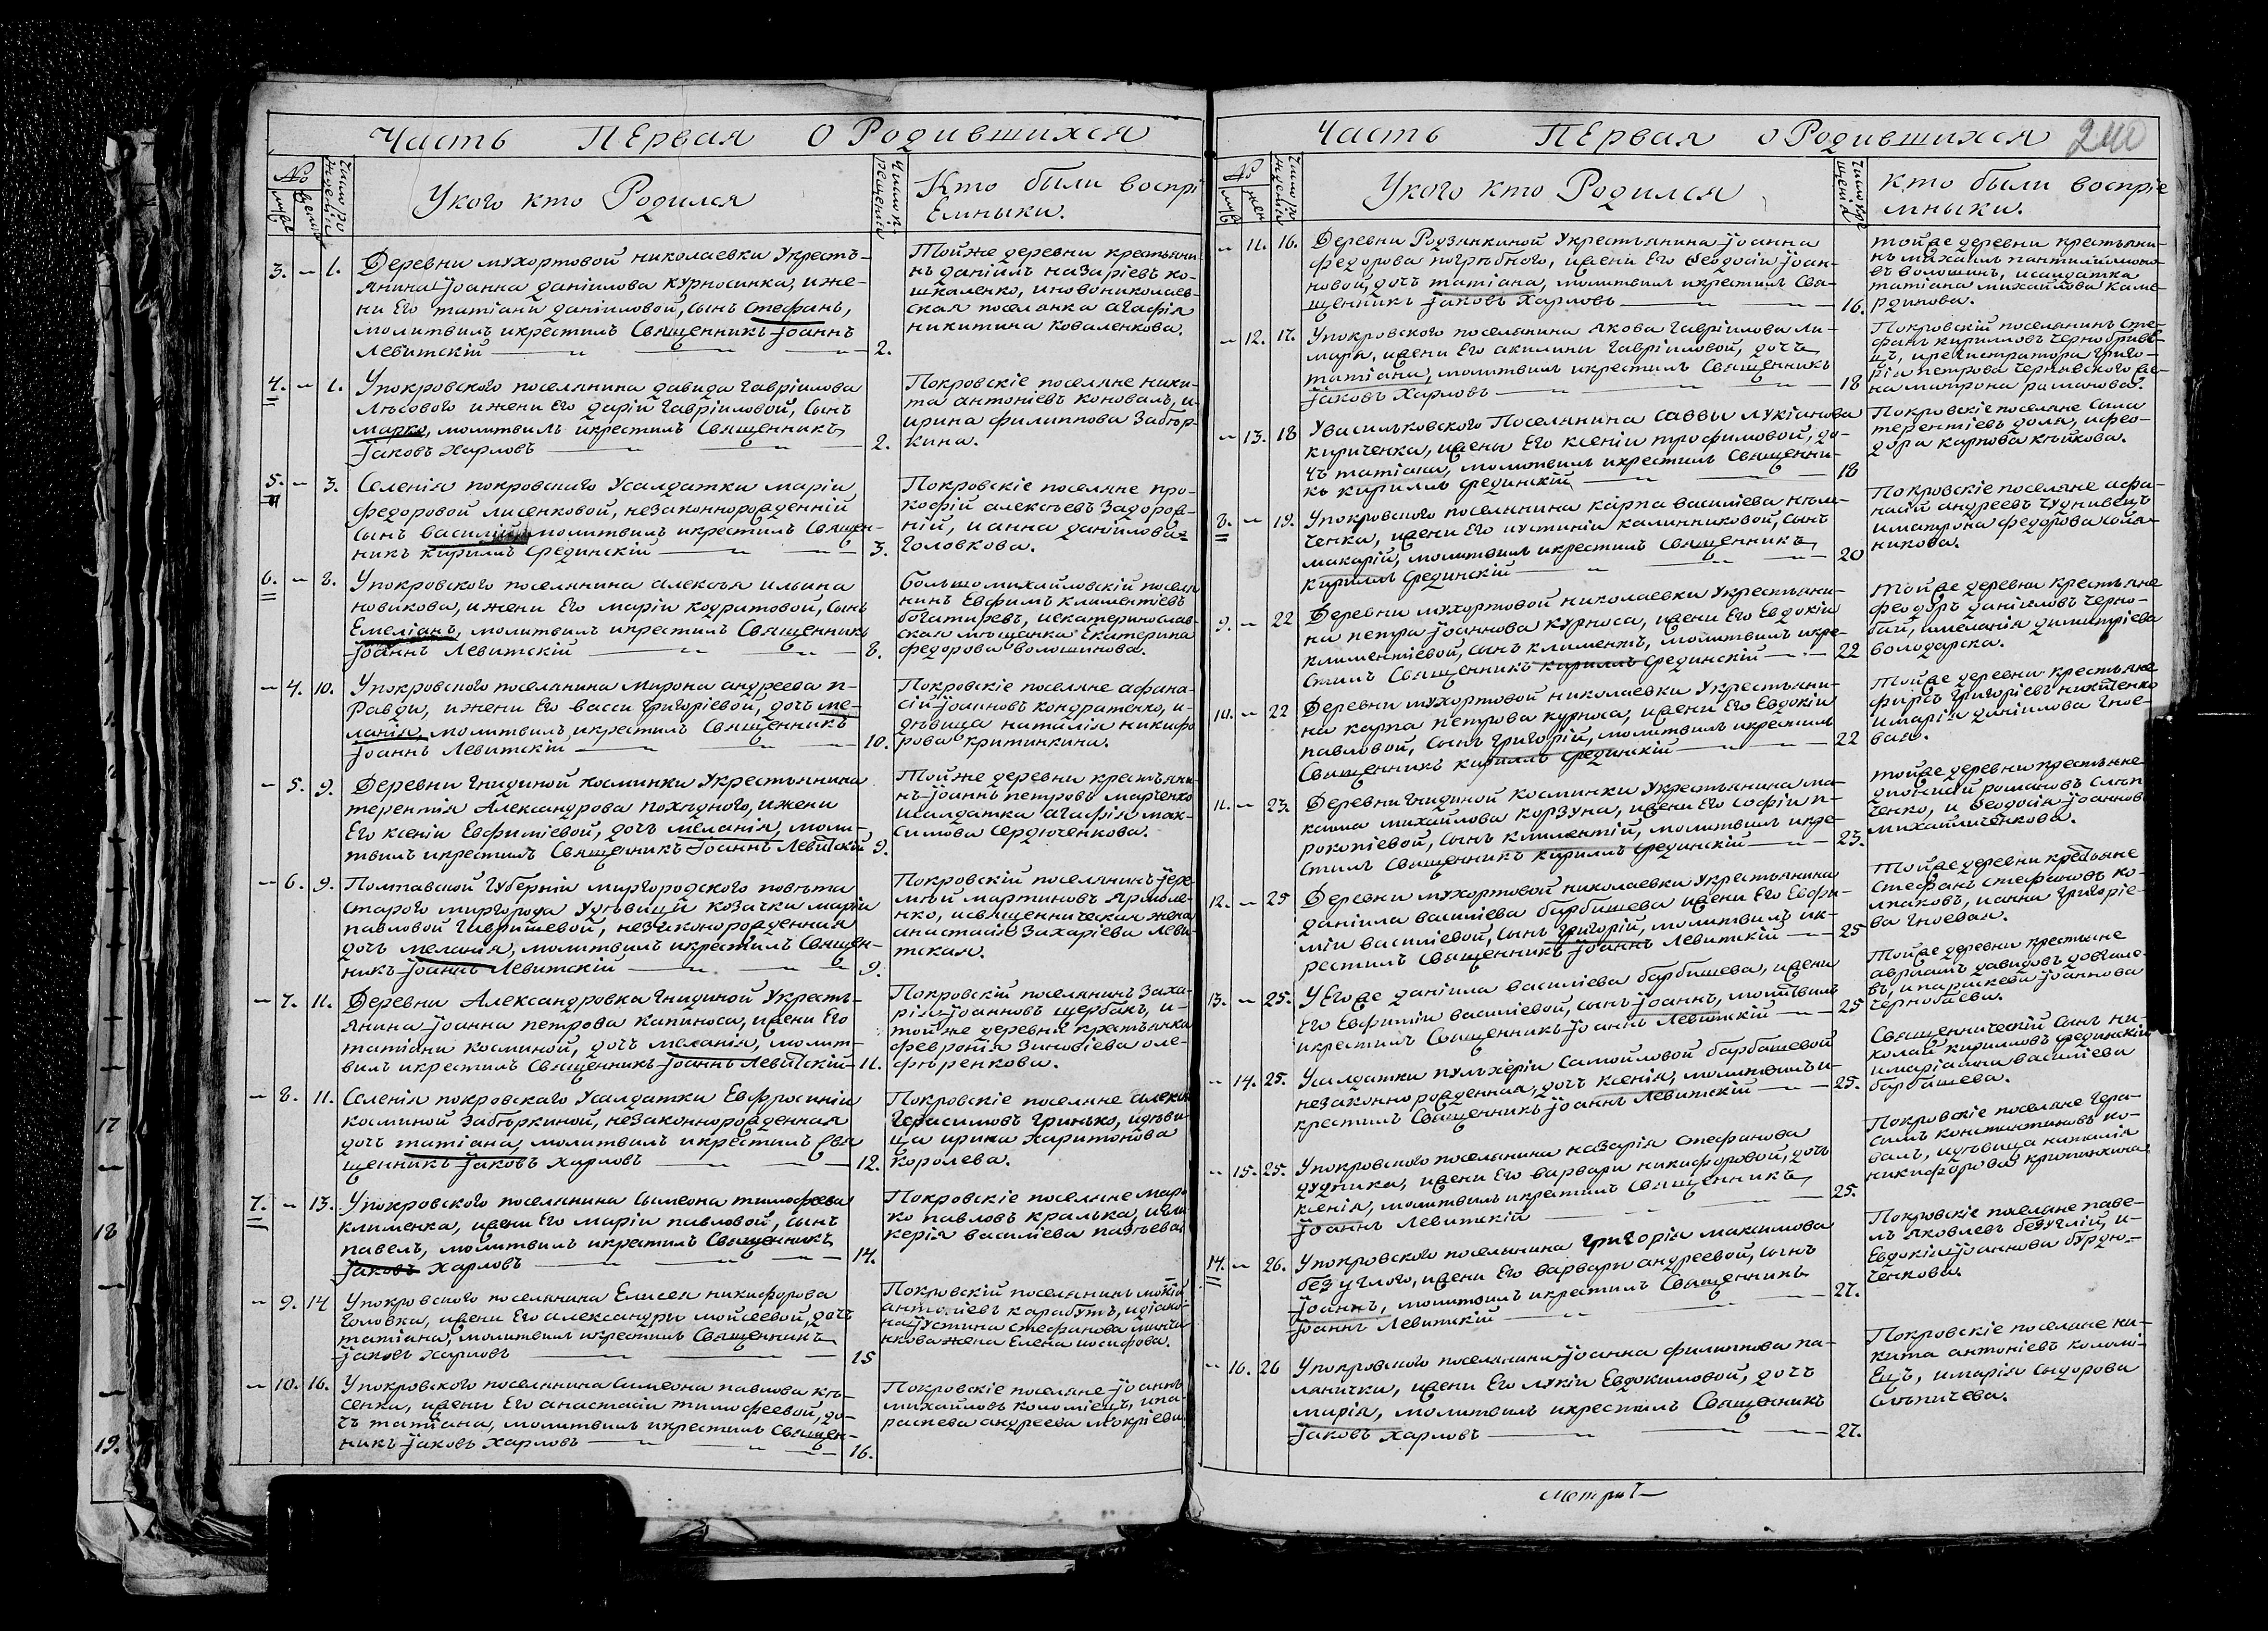 Часть Первая О Родившихся
№
Укого кто Родился
Кто были воспрі
Емныки.
3. — 1. Деревни мухортовой николаевки Укресть-
янина Іоанна даніилова курносинка, иже-
ни Его татіани даніиловой, сынъ стефанъ,
молитвилъ икрестилъ Священникъ Іоаннъ
Левитскій 2.
Тойже деревни крестьяни-
нъ даніилъ назаріевъ ко-
шкаленко, иновониколаев-
ская поселянка агафія
никитина коваленкова.
4. — 1. Упокровского поселянина давида гавріилова
Лѣсового ижени Его дарій гавріиловой, Сынъ
марко, молитвилъ икрестилъ Священникъ
Іаковъ Харловъ 2.
Покровскіе поселяне ники-
та антоніевъ коновалъ, и-
ирина филиппова Забѣр-
кина.
5. — 3. Селенія покровского Усалдатки маріи
федоровой лисенковой, незаконнорожденній
сынъ василій молитвилъ икрестилъ Священ-
никъ кириллъ Срединскій 3.
Покровскіе поселяне про-
кофій алексѣевъ Задорож-
ній, и анна даніилова
головкова.
6. — 8. Упокровского поселянина алексѣя ильина
новикова, ижени Его маріи кодратовой, Сынъ
Емеліанъ, молитвилъ икрестилъ Священникъ
Іоаннъ Левитскій 8.
большомихайловскій поселя
нинъ Евфимъ климентіевъ
богатиревъ, иекатеринослав-
ская мѣщанка Екатерина
федорова волошинова.
— 4. 10. Упокровского поселянина мирона андреева п-
Равди, ижени Его васси григоріевой, дочъ ме-
ланія, молитвилъ икрестилъ Священникъ
Іоаннъ Левитскій 10.
Покровскіе поселяне афана-
сій Іоанновъ кондратенко, и-
дѣвица наталія никифо
рова критинкина.
— 5. 9. Деревни гнидиной косминки Укрестьянина
терентія Александрова похидного, ижени
Его ксеніи Евфиміевой, дочъ меланія, моли-
твилъ икрестилъ Священникъ Іоаннъ Левитскій 9.
Тойже деревни крестьяни-
нъ Іоаннъ петровъ марченко
исалдатка агафія мак-
симова сердюченкова.
— 6. 9. Полтавской губерніи миргородского повѣта
старого миргорода Удѣвици козачки маріи
павловой гавришевой, незаконорожденная
дочъ меланія, молитвилъ икрестилъ Священ-
никъ Іоаннъ Левитскій 9.
Покровскій поселянинъ Іере-
мѣй мартиновъ ярмоле-
нко, исвященническая жена
анастасія Захаріева Леви-
тская.
— 7. 11. Деревни Александровка гнидиной Укресть-
янина Іоанна петрова капиноса, ижени Его
татіани косминой, дочъ меланія, молит-
вилъ икрестилъ Священникъ Іоаннъ Левитскій 11.
Покровскій поселянинъ Заха-
рія Іоанновъ щербакъ, и-
тойже деревни крестьянка
февронія Зиновіева оле-
фѣренкова.
— 8. 11. Селенія покровскаго Усалдатки Евфросиніи
косминой Забѣркиной, незаконнорожденная
дочъ татіана, молитвилъ икрестилъ Свя
щенникъ Іаковъ Харловъ 12.
Покровскіе поселяне алексѣй
герасимовъ гринько, идѣви-
ца ирина Харитонова
королева.
7. — 13. Упокровского поселянина Симеона тимофеева
клименка, ижени Его маріи павловой, сынъ
павелъ, молитвилъ икрестилъ Священникъ
Іаковъ Харловъ 14.
Покровскіе поселяне мар-
ко павловъ кралька, игли
керія василіева
— 9. 14 Упокровского поселянина Елисея никифорова
головка, ижени Его александры мойсеевой, дочъ
татіана, молитвилъ икрестилъ Священникъ
Іаковъ Харловъ 15
Покровскій поселянинъ мокій
антоніевъ карабутъ, идіако-
на Іустина Стефанова
жена Елена иосифова.
— 10. 16. Упокровского поселянина Симеона павлова кѣ-
сенки, ижени Его анастасіи тимофеевой, до-
чъ татіана, молитвилъ икрестилъ Священ-
никъ Іаковъ Харловъ 16.
Покровскіе поселяне Іоаннъ
михайловъ коломіецъ, ипа-
раскева андреева
Часть Первая о Родившихся 240
№
Укого кто Родился
Кто были воспріе
мныки.
— 11. 16. Деревни Родзянкиной Укрестьянина Іоанна
федорова погрѣбного, ижени Его феодосіи Іоан-
новой, дочъ татіана, молитвилъ икрестилъ Свя-
щенникъ Іаковъ Харловъ 16.
тойже деревни крестьяни-
нъ михаилъ пантилиймоно-
въ волошинъ, исалдатка
татіана михайлова каме-
рдинова.
— 12. 17. Упокровского поселянина якова гавріилова ли-
маря, ижени Его акилини гавріиловой, дочъ
татіана, молитвилъ икрестилъ Священникъ
Іаковъ Харловъ 18
Покровскій поселянинъ сте-
фанъ кирилловъ чернобриве-
цъ, ирегистратора григо-
рія петрова чернявского же-
на матрона романова.
— 13. 18 Увасильковского Поселянина Саввы лукіанова
кириченка, ижены Его ксеніи трофимовой, до-
чъ татіана, молитвилъ икрестилъ Священни-
къ кириллъ Срединскій 18
Покровскіе поселяне сила
терентіевъ доля, ифео-
дора карпова клѣйкова.
8. — 19. Упокровского поселянина карпа василіева нѣме-
ченка, ижени Его иустиніи калинниковой, Сынъ
макарій, молитвилъ икрестилъ Священникъ
кириллъ Срединскій 20
Покровскіе поселяне афа-
насій андреевъ чудновецъ
иматрона федорова солян-
никова.
9. — 22 Деревни мухортовой николаевки Укрестьяни-
на петра Іоаннова курноса, ижени Его Евдокіи
климентіевой, сынъ климентъ, молитвилъ икре-
стилъ Священникъ кириллъ Срединскій 22
Тойже деревни крестьяне
феодоръ даніиловъ черно-
бай, имеланія димитріева
володарска.
10. — 22 Деревни мухортовой николаевки Укрестьяни-
на карпа петрова курноса, ижени Его Евдокіи
павловой, Сынъ григорій, молитвилъ икрестилъ
Священникъ кириллъ Срединскій 22
Тойже деревни крестьяне
фирсъ григоріевъ никитенко
имарія даніилова гное-
вая.
11. — 23. Деревни гнидиной косминки Укрестьянина ма-
ксима михайлова корзуна, ижени Его софіи п-
рокопіевой, Сынъ климентій, молитвилъ икре-
стилъ Священникъ кириллъ Срединскій 23.
тойже деревни крестьяне
діонисій романовъ слѣп
ченко, и феодосія Іоаннов
михайличенкова.
12. — 25 Деревни мухортовой николаевки Укрестьянина
даніила василіева барбишева ижени Его Евфи-
міи василіевой, Сынъ григорій, молитвилъ ик-
рестилъ Священникъ Іоаннъ Левитскій 25
Тойже деревни крестьяне
Стефанъ стефановъ ко-
лпаковъ, ианна григоріе-
ва гноевая.
13. — 25. У Егоже даніила василіева барбишева, ижени
Его Евфиміи василіевой, сынъ Іоаннъ, молитвилъ
икрестилъ Священникъ Іоаннъ Левитскій 25
Тойже деревни крестьяне
авраамъ давидовъ довгале-
въ, ипараскева Іоаннова
чернобаева.
— 14. 25. Усалдатки пульхеріи Самойловой барбашевой
незаконнорожденная, дочъ ксенія, молитвилъ и-
крестилъ Священникъ Іоаннъ Левитскій 25.
Священническій сынъ ни-
колай кирилловъ срединскій
имаріамна василіева
барбашева.
— 15. 25. Упокровского поселянина назарія стефанова
дудника, ижени Его варвари никифоровой, дочъ
ксенія, молитвилъ икрестилъ Священникъ
Іоаннъ Левитскій 25.
Покровскіе поселяне гера-
симъ константиновъ ко-
валъ, идѣвица наталія
никифорова критинкина.
14. — 26. Упокровского поселянина григорія максимова
безуглого, ижени Его варвари андреевой, сынъ
Іоаннъ, молитвилъ икрестилъ Священникъ
Іоаннъ Левитскій 27.
Покровскіе поселяне паве-
лъ яковлевъ безуглій, и-
Евдокія Іоаннова бурдю-
ченкова.
— 16. 26 Упокровского поселянина Іоанна филиппова па-
ланички, ижени Его лукіи Евдокимовой, дочъ
марія, молитвилъ икрестилъ Священникъ
Іаковъ Харловъ 27.
Покровскіе поселяне ни-
кита антоніевъ коломі-
Ецъ, имарія сидорова
слѣпичева.
17
18
19.